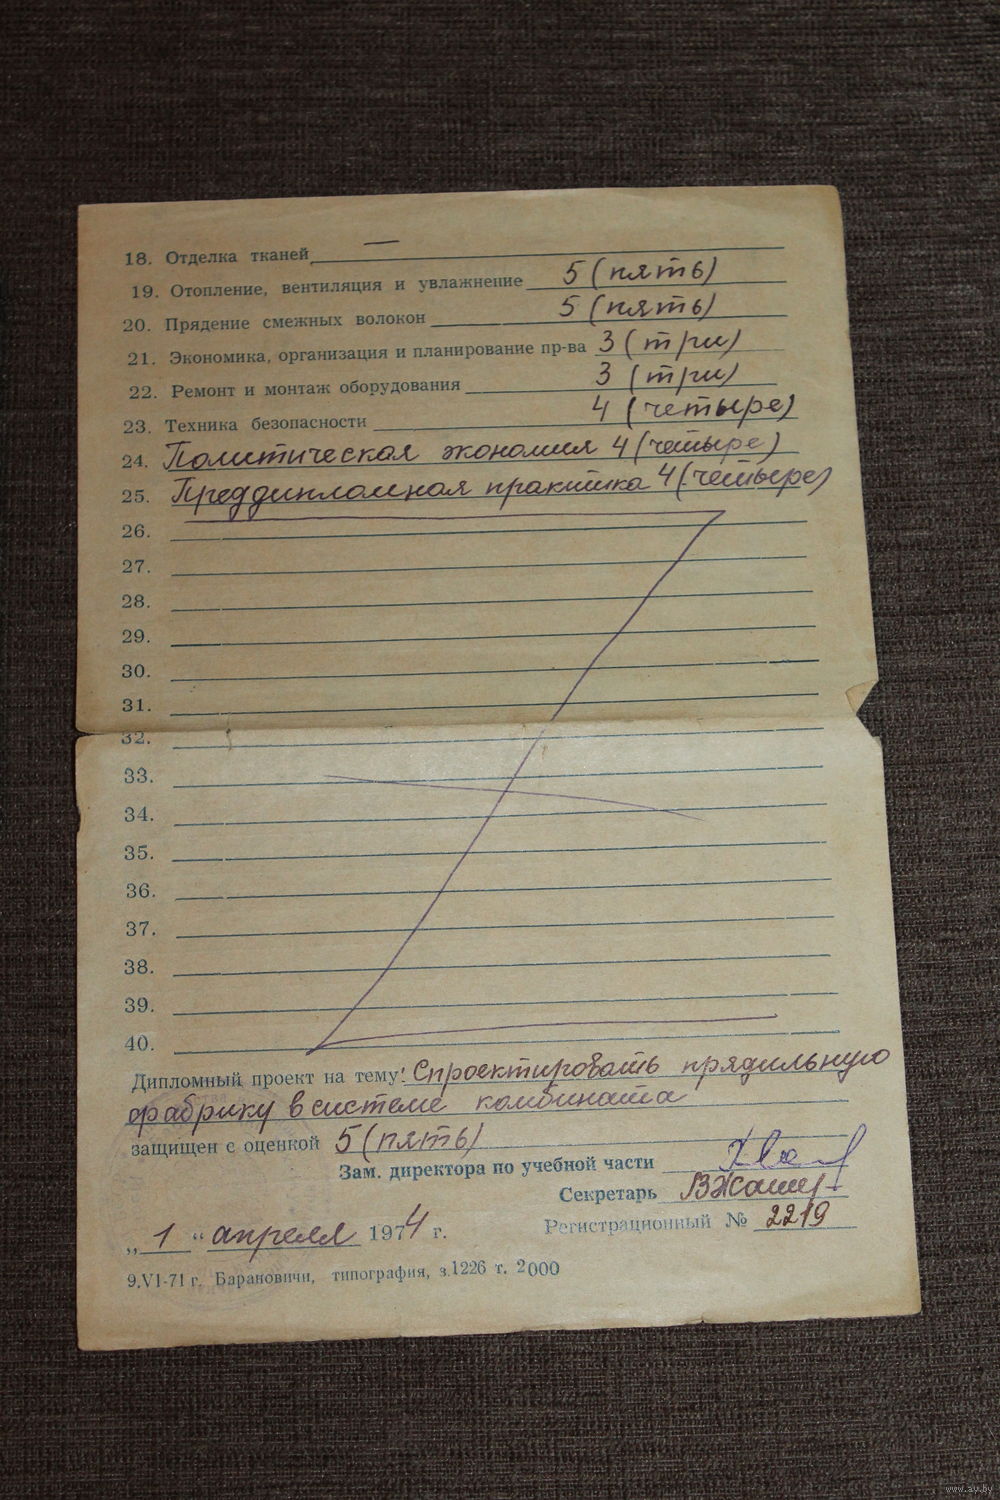 18. Отделка тканей —
19. Отопление, вентиляция и увлажнение 5 (пять)
20. Прядение смежных волокон 5 (пять)
21. Экономика, организация и планирование пр-ва 3 (три)
22. Ремонт и монтаж оборудования 3 (три)
23. Техника безопасности 4 (четыре)
24. Политическая экономия 4 (четыре)
25. Преддипломная практика 4 (четыре)
26.
27.
28.
29.
30.
31.
32.
33.
34.
35.
36.
37.
38.
39.
40.
Дипломный проект на тему: Спроектировать прядильную
фабрику в системе комбината
защищен с оценкой 5 (пять)
Зам. директора по учебной части
Секретарь
Регистрационный № 2219
„ 1 “ апреля 1974 г.
9.VI-71 г. Барановичи, типография, з.1226 т. 2000
www.ay.by